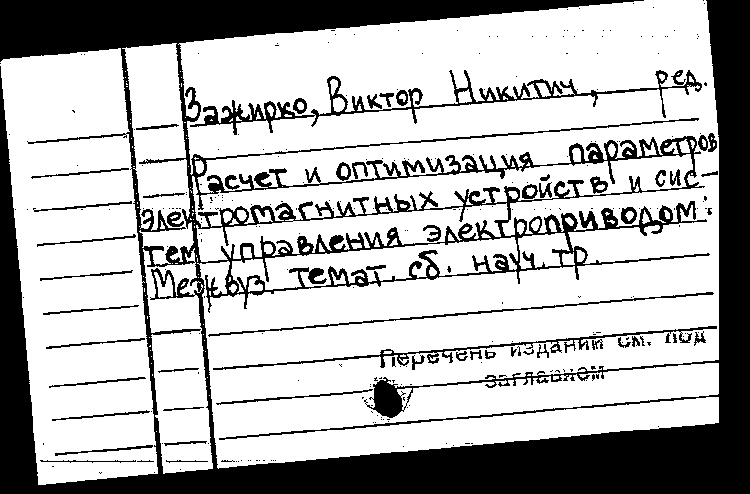 Зажирко, Виктор Никитич, ред.
Расчет и оптимизация параметров
электромагнитных устройств и сис-
тем управления электроприводом:
Межвуз. темат. сб. науч. тр.
Перечень изданий см. под
заглавием